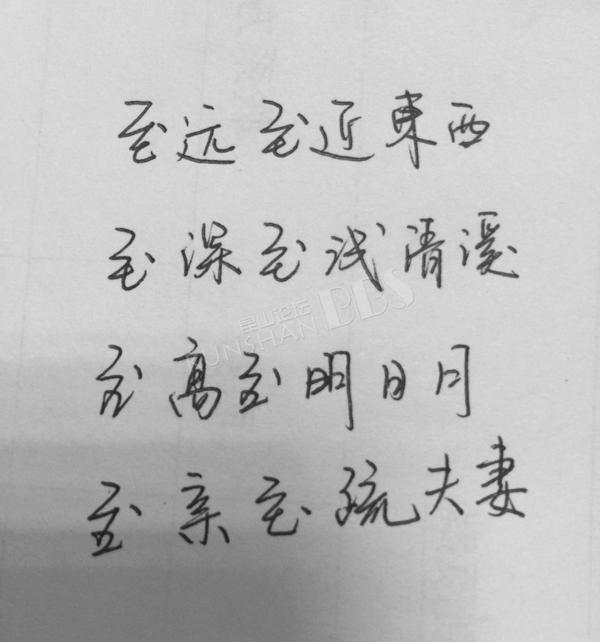 至远至近東西
至深至浅清溪
至高至明日月
至亲至疏夫妻
昆山论坛
KUNSHAN BBS